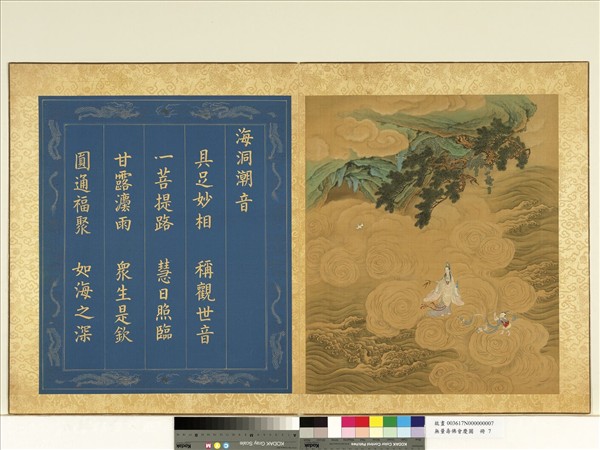 海洞潮音
具足妙相 稱觀世音
一菩提路 慧日照臨
甘露灋雨 衆生是欽
圓通福聚 如海之深
故畫 003617N000000007
無量壽佛會慶圖 冊 7